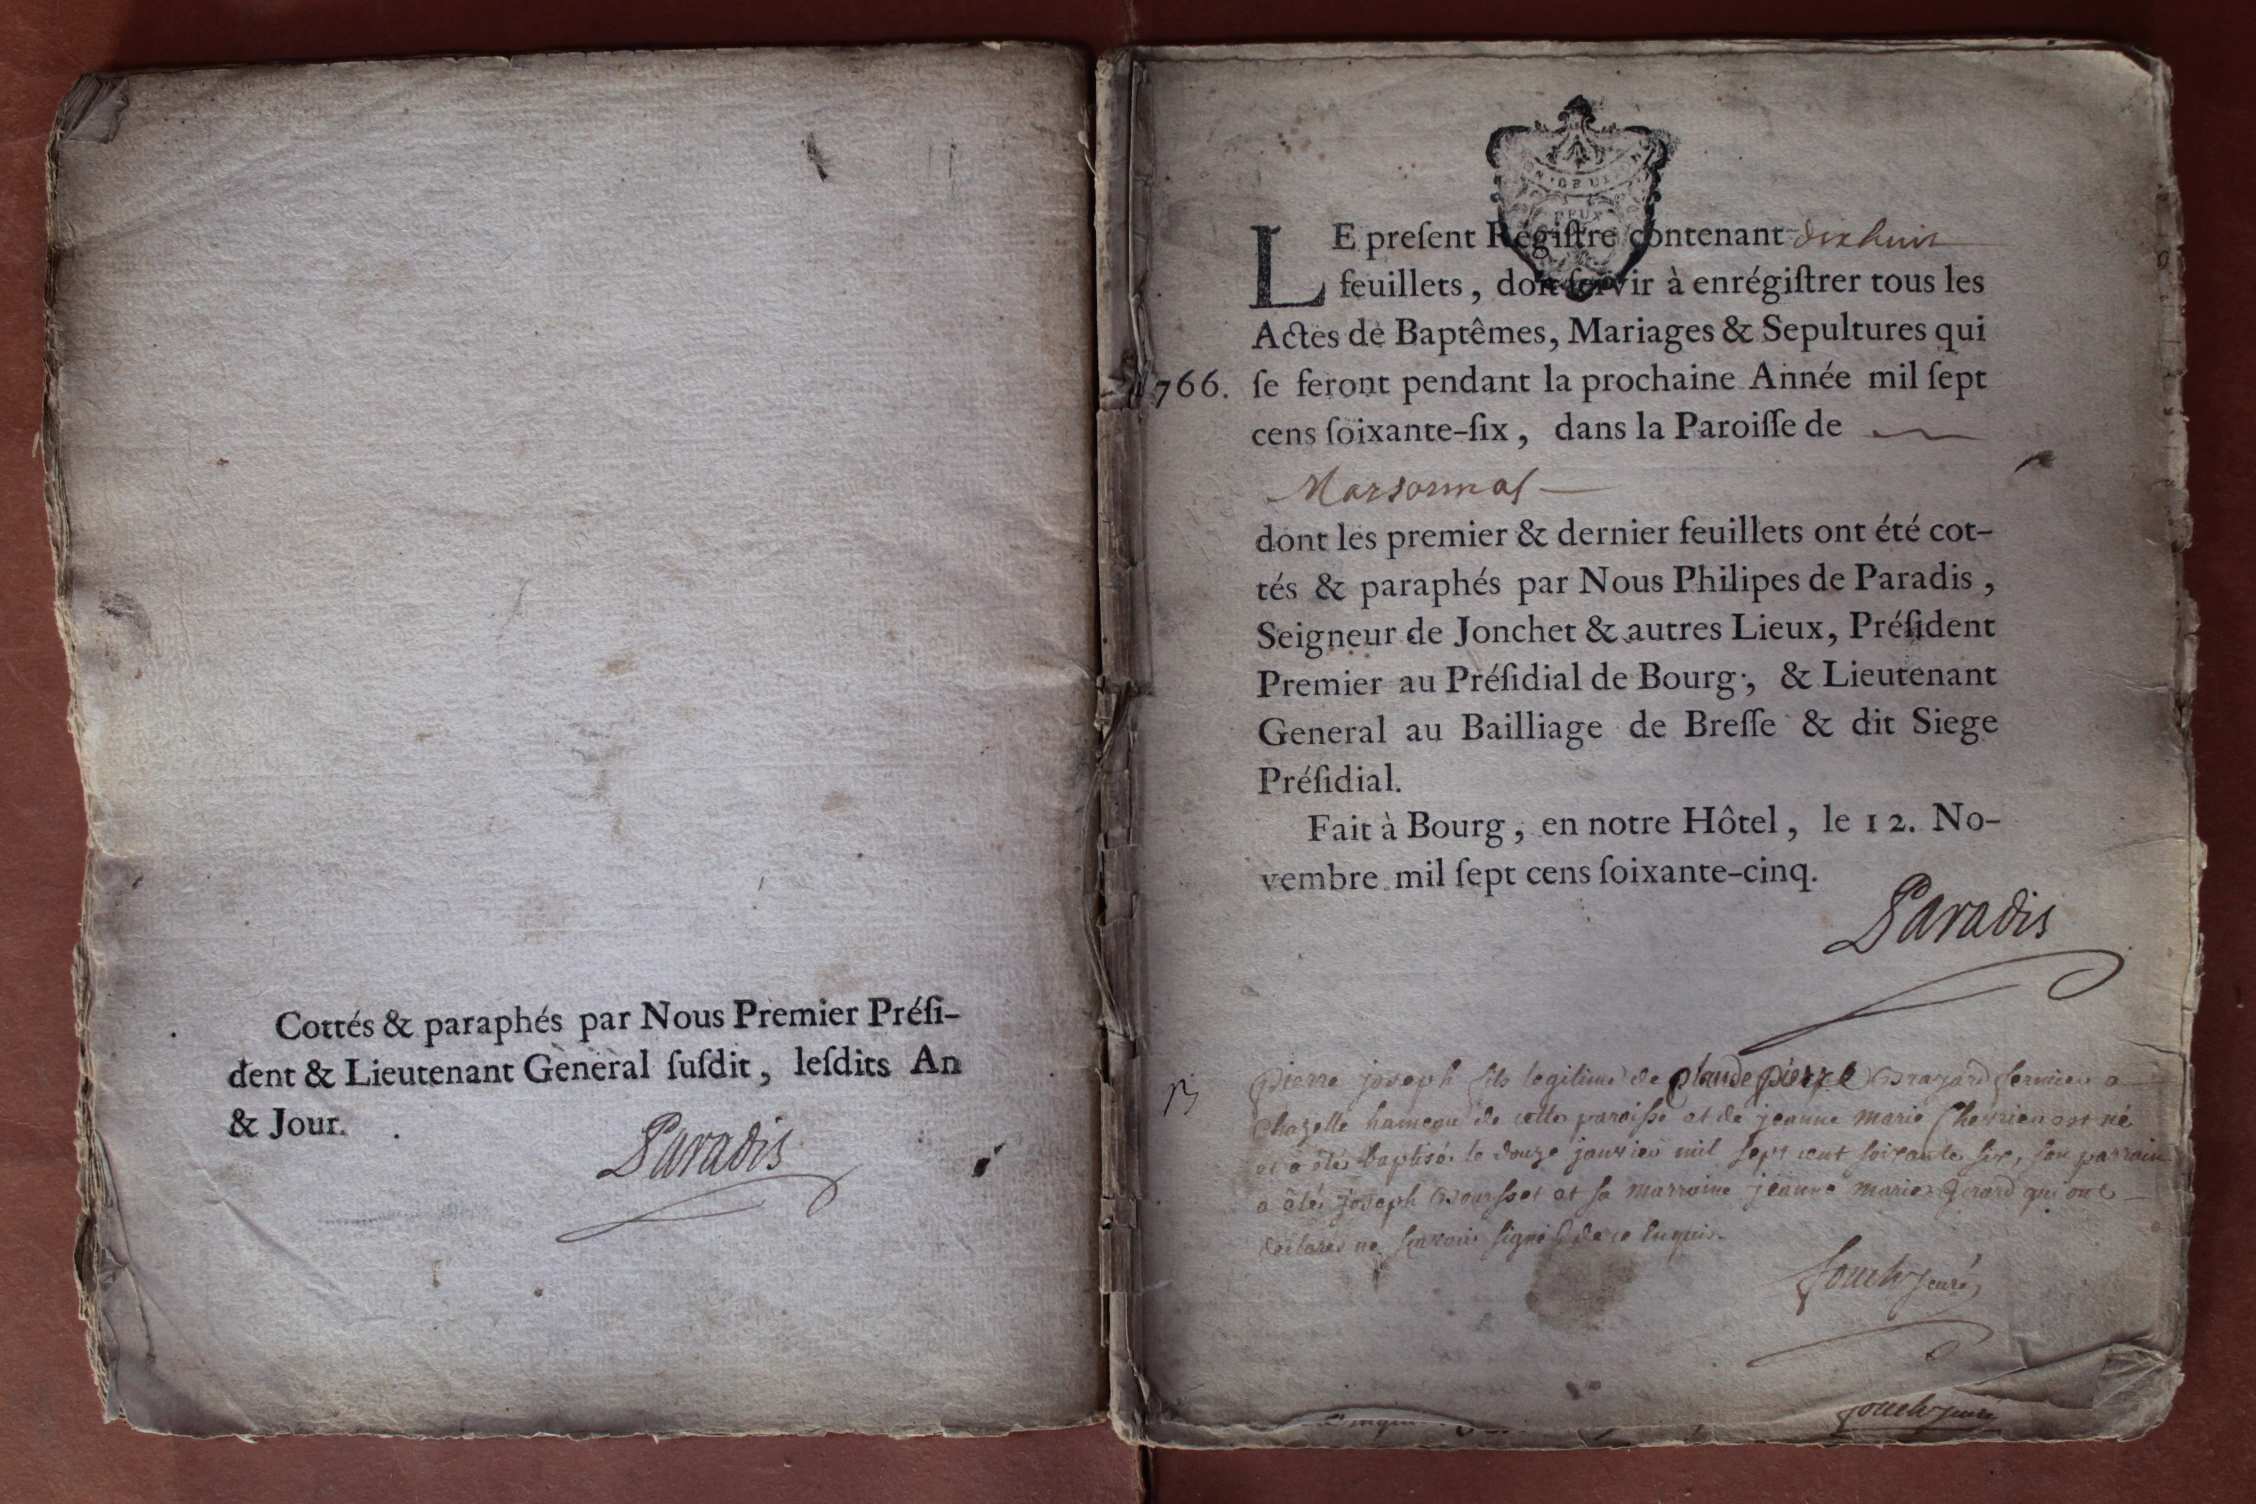 Cottés & paraphés par Nous Premier Préſi-
dent & Lieutenant Géneral ſuſdit, leſdits An
& Jour.
Paradis
DEUX
LE preſent Régiſtre contenant dix huit
feuillets, doit ſervir à enrégiſtrer tous les
Actes de Baptêmes, Mariages & Sepultures qui
1766. ſe feront pendant la prochaine Année mil ſept
cens ſoixante-ſix, dans la Paroiſſe de
Marsonnas
dont les premier & dernier feuillets ont été cot-
tés & paraphés par Nous Philipes de Paradis,
Seigneur de Jonchet & autres Lieux, Préſident
Premier au Préſidial de Bourg, & Lieutenant
General au Bailliage de Breſſe & dit Siege
Préſidial.
Fait à Bourg, en notre Hôtel, le 12. No-
vembre mil ſept cens ſoixante-cinq.
Paradis
pierre joseph fils legitime de claude pierre
chazelle hameau de cette paroisse et de jeanne marie est né
et a été baptisé le douze janvier mil sept cent soixante six, son parrain
a été joseph et sa marraine jeanne marie qui ont
declaré ne signer de ce enquis.
curé